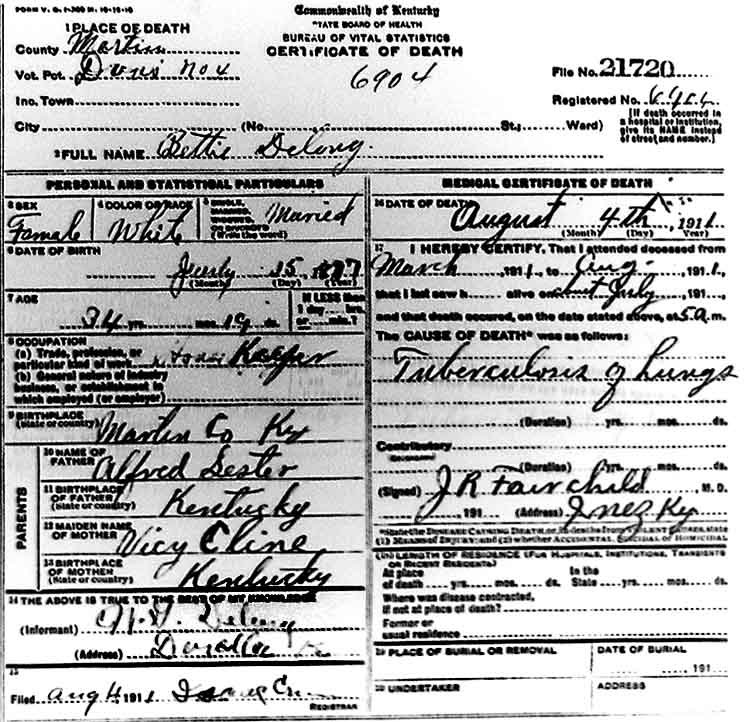 FORM V. S. 1-300 M. 10-13-10
Commonwealth of Kentucky
STATE BOARD OF HEALTH
BUREAU OF VITAL STATISTICS
CERTIFICATE OF DEATH
1 PLACE OF DEATH
County Martin
Vot. Pct. No 4
Inc. Town
City (No. St.; Ward)
6904
File No. 21720
Registered No.
[If death occurred in a hospital or institution, give its NAME instead of street and number.]
2 FULL NAME Bettie Delong.
PERSONAL AND STATISTICAL PARTICULARS
3 SEX
Famale
4 COLOR OR RACE
White
5 SINGLE, MARRIED, WIDOWED, OR DIVORCED (Write the word)
Maried
6 DATE OF BIRTH
July 15 1877
(Month) (Day) (Year)
7 AGE
34 yrs. mos. 19 ds.
If LESS than 1 day hrs. or min.?
8 OCCUPATION
(a) Trade, profession, or particular kind of work Keeper
(b) General nature of industry business, or establishment in which employed (or employer)
9 BIRTHPLACE
(State or country)
Martin Co Ky
PARENTS
10 NAME OF FATHER
Alfred Lester
11 BIRTHPLACE OF FATHER
(State or country)
Kentucky
12 MAIDEN NAME OF MOTHER
Vicy Cline
13 BIRTHPLACE OF MOTHER
(State or country)
Kentucky
14 THE ABOVE IS TRUE TO THE BEST OF MY KNOWLEDGE
(Informant) Delong
(Address)
15
Filed Aug 4 1911
REGISTRAR
MEDICAL CERTIFICATE OF DEATH
16 DATE OF DEATH
August 4th, 1911
(Month) (Day) (Year)
17 I HEREBY CERTIFY, That I attended deceased from
March, 1911, to Aug., 1911,
that I last saw h alive on July, 191,
and that death occurred, on the date stated above, at 5 a m.
The CAUSE OF DEATH* was as follows:
Tuberculosis of Lungs
(Duration) yrs. mos. ds.
Contributory
(Duration) yrs. mos. ds.
(Signed) J R Fairchild M. D.
191 (Address) Inez Ky
*State the DISEASE CAUSING DEATH, or, in deaths from VIOLENT CAUSES, state (1) MEANS OF INJURY; and (2) whether ACCIDENTAL, SUICIDAL OR HOMICIDAL
18 LENGTH OF RESIDENCE (FOR HOSPITALS, INSTITUTIONS, TRANSIENTS OR RECENT RESIDENTS)
At place of death yrs. mos. ds. In the State yrs. mos. ds.
Where was disease contracted,
If not at place of death?
Former or usual residence
19 PLACE OF BURIAL OR REMOVAL
DATE OF BURIAL
, 191
20 UNDERTAKER
ADDRESS